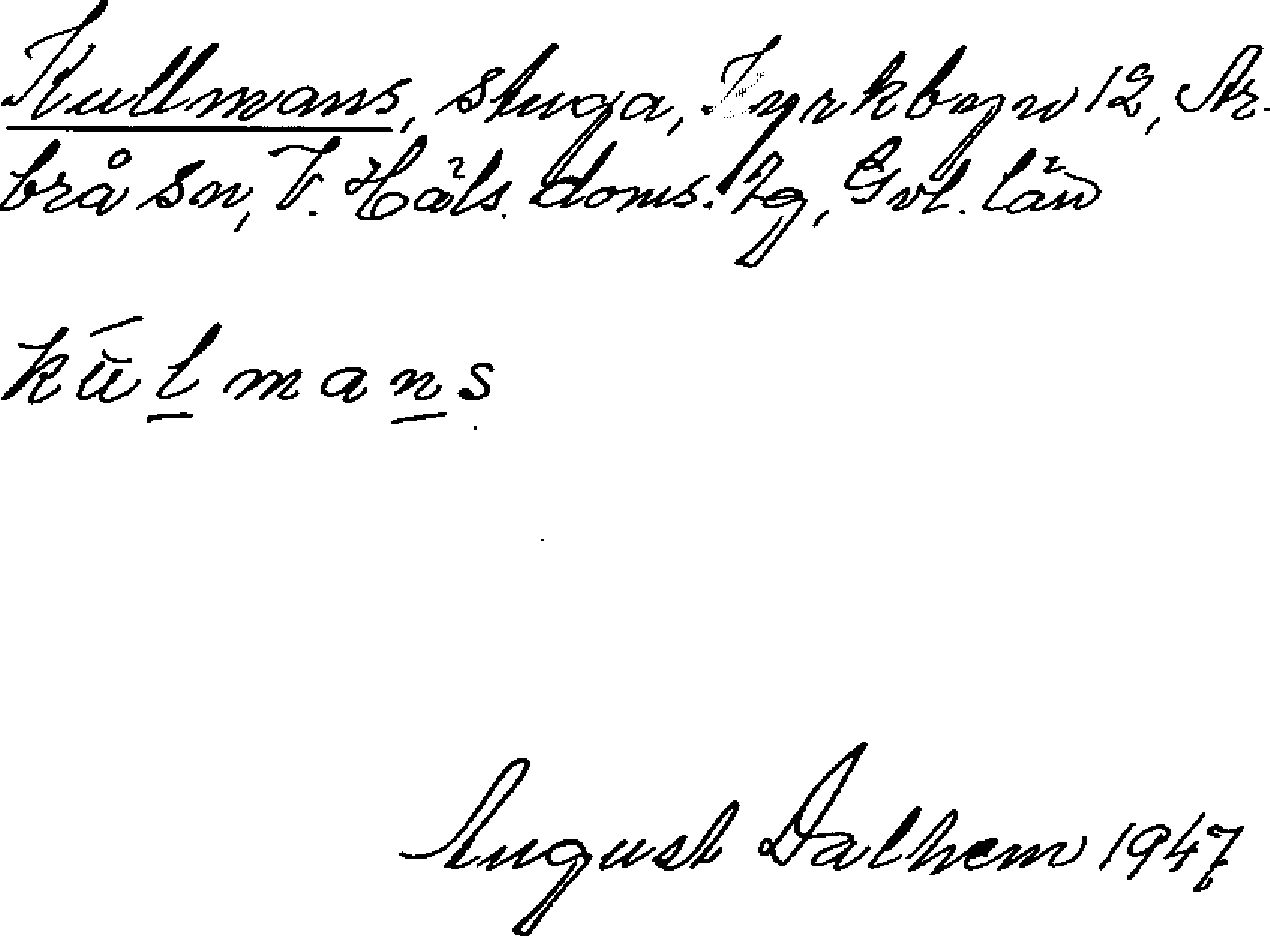 Kullmans, stuga, Kyrkbyn 12, Ar-
brå sn, V. Häls. doms. Ig, Gvl. län
kŭ́l̲man̲s
August Dalhem 1947